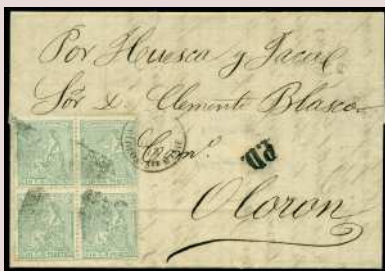 Por Huesca y Jaca
Sor D. Clemente Blasco
Com.o
P.D.
Oloron